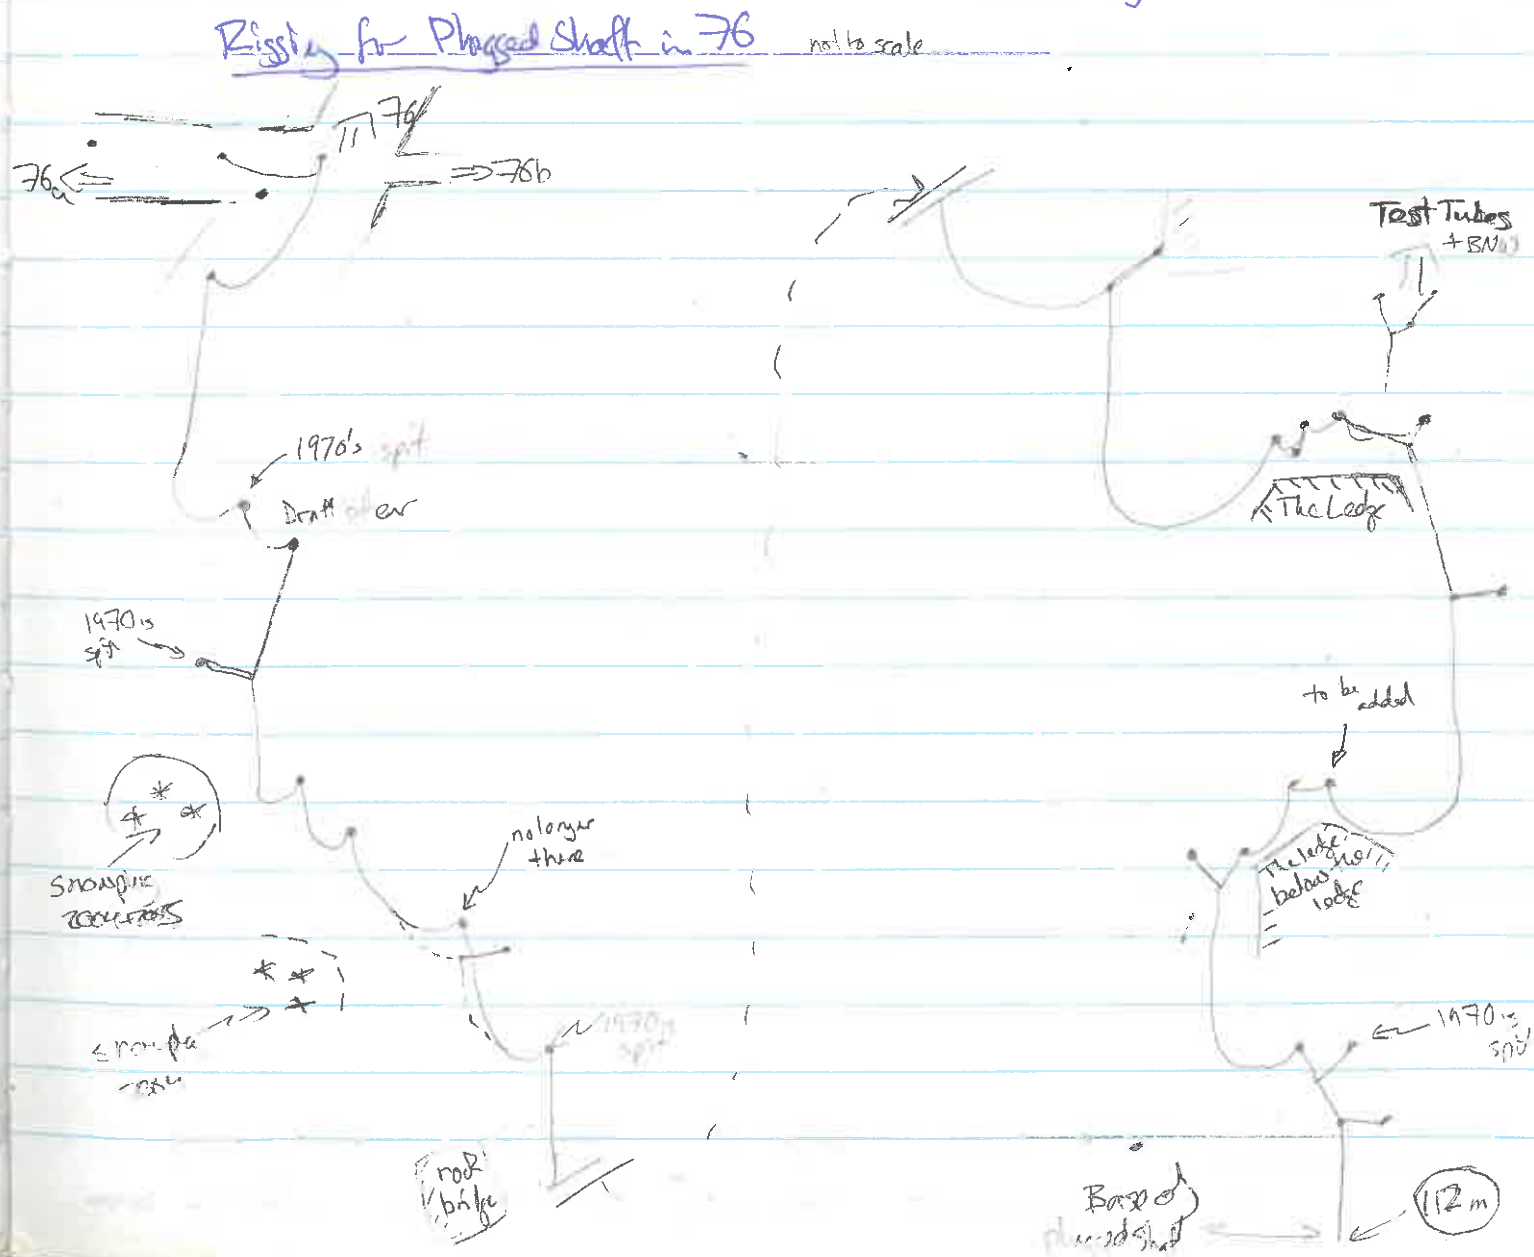 Rigging for Plugged Shaft in 76 not to scale
76
76a
76b
1970's spit
1970's
spit
Snowpipe
no longer
there
1970's
spit
rock
bridge
Test Tubes
The Ledge
to be
added
The ledge
below
ledge
1970's
spit
Base of
plugged shaft
112m